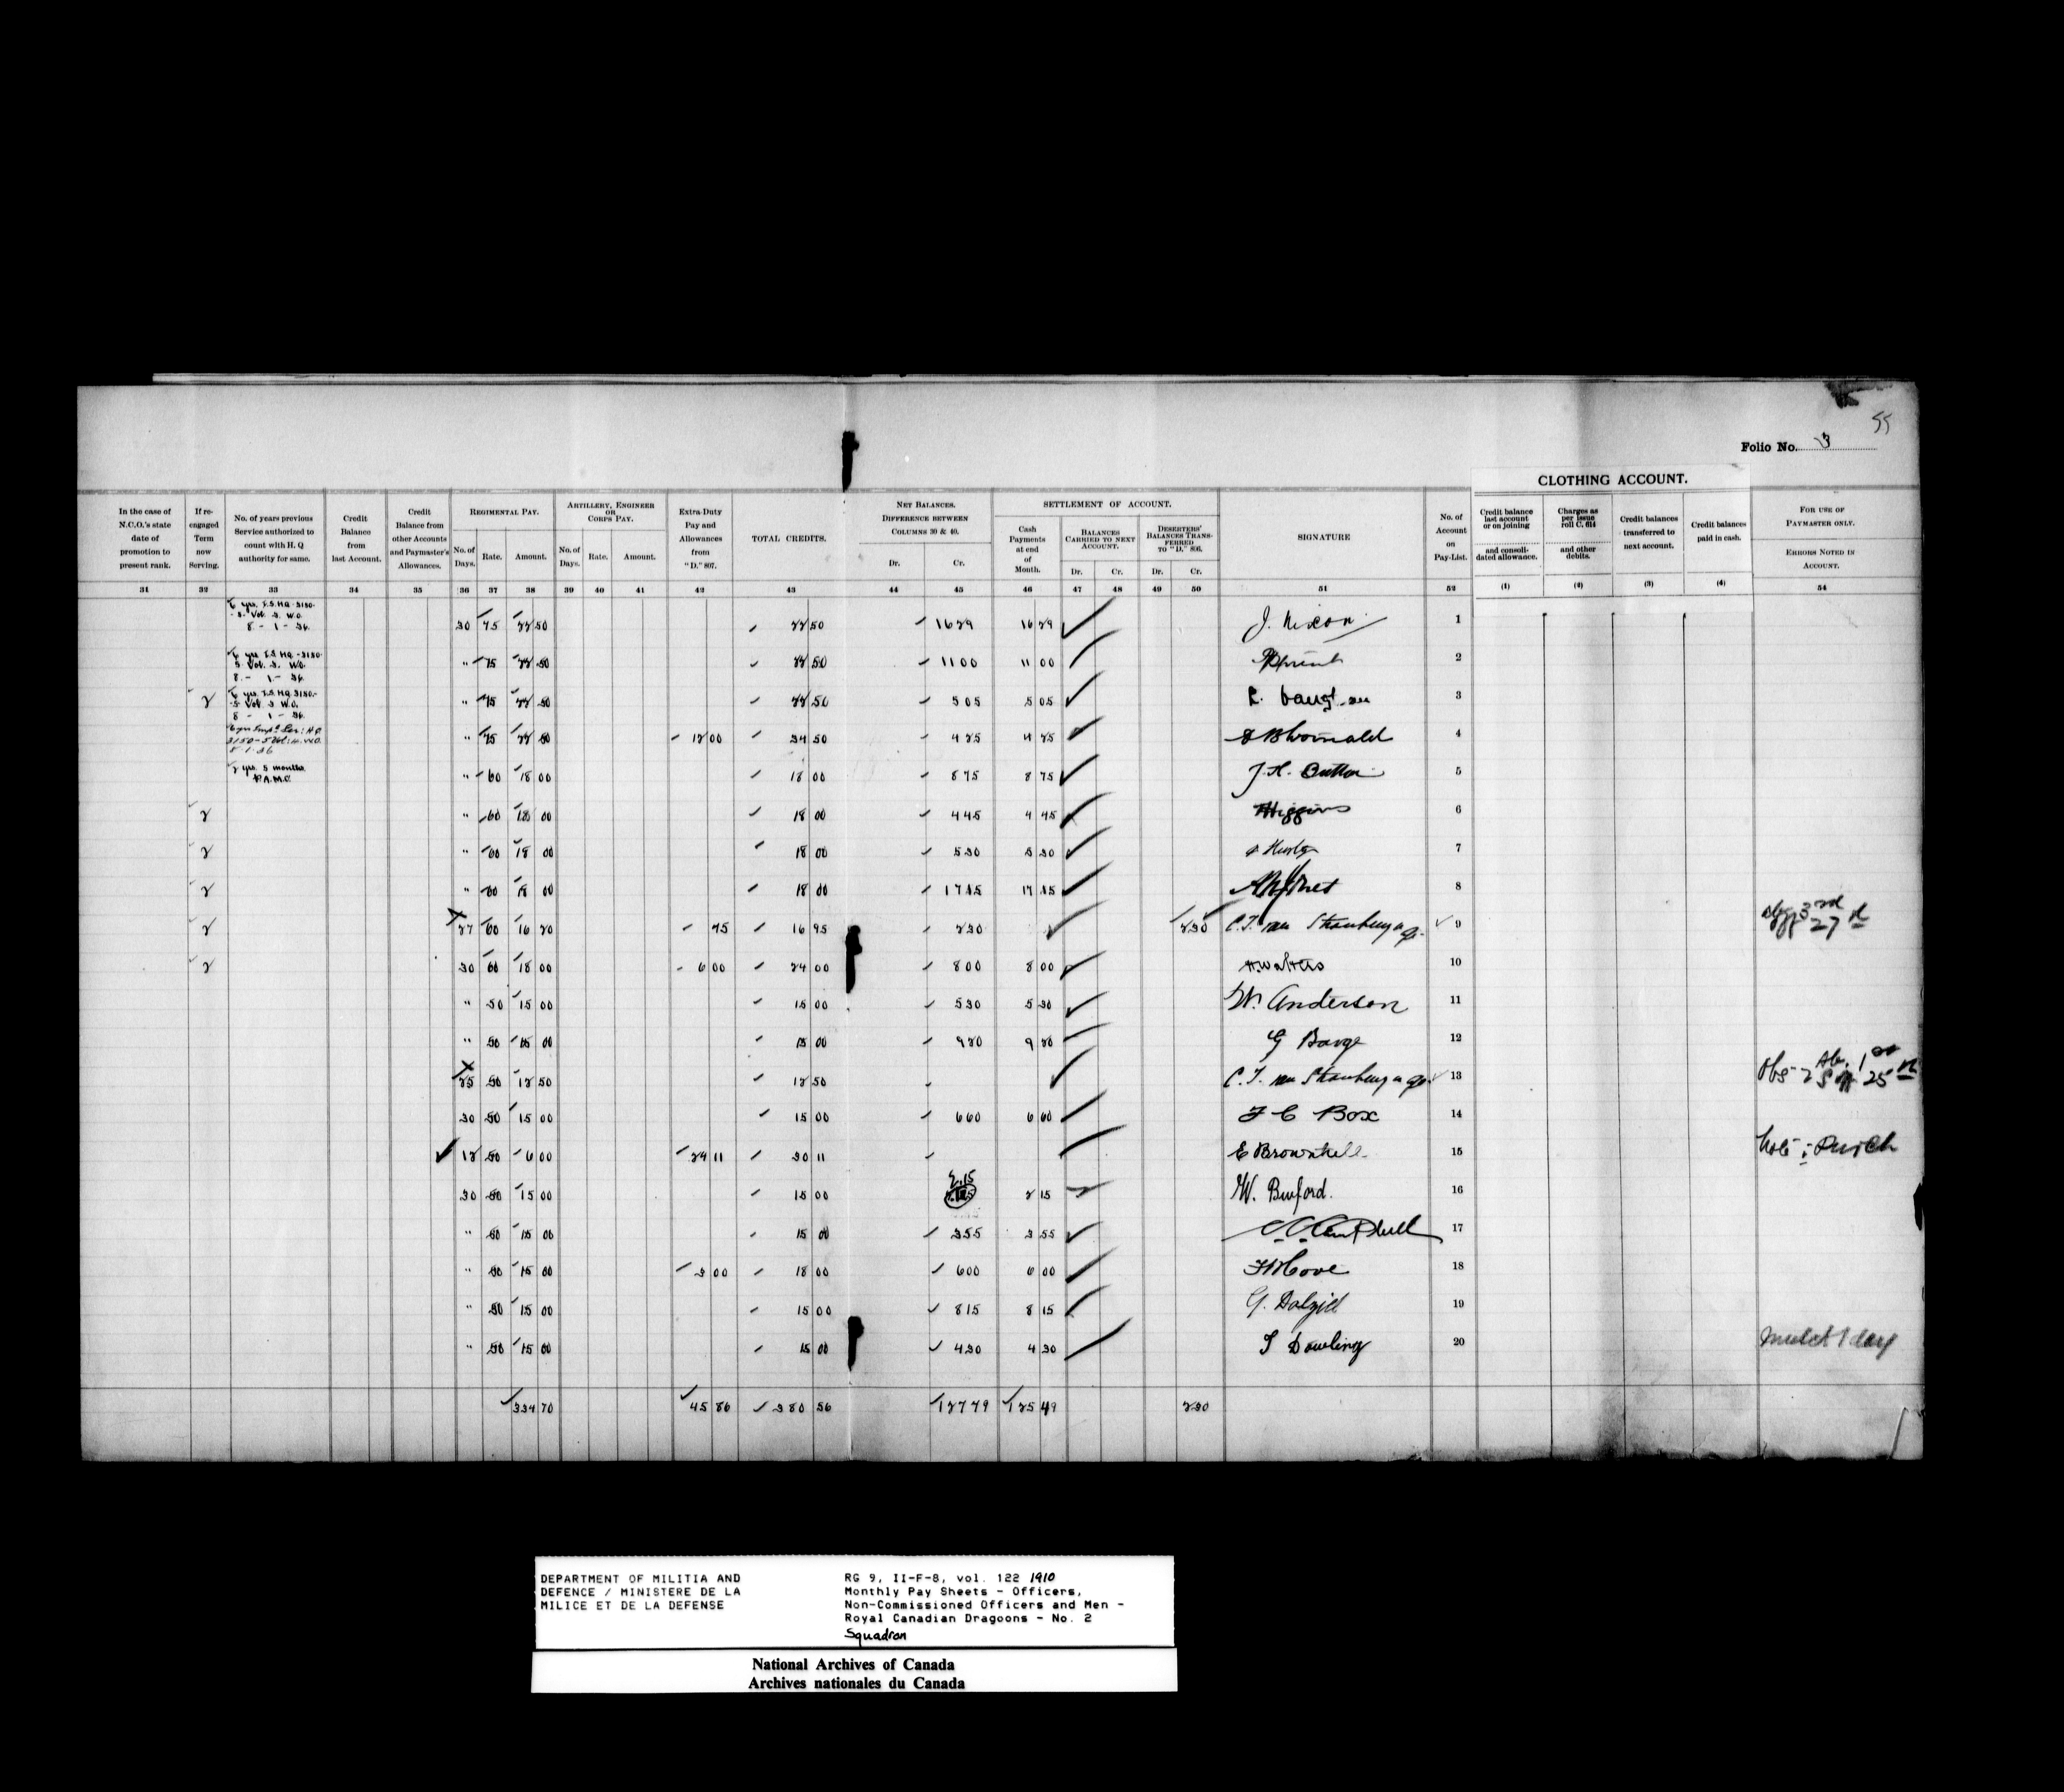 55
Folio No. 3
CLOTHING ACCOUNT.
In the case of N.C.O.'s state date of promotion to present rank.
If re-engaged Term now Serving.
No. of years previous Service authorized to count with H. Q authority for same.
Credit Balance from last Account.
Credit Balance from other Accounts and Paymaster's Allowances.
REGIMENTAL PAY.
No. of Days.
Rate.
Amount.
ARTILLERY, ENGINEER OR CORPS PAY.
No. of Days.
Rate.
Amount.
Extra-Duty Pay and Allowances from "D." 807.
TOTAL CREDITS.
NET BALANCES. DIFFERENCE BETWEEN COLUMNS 30 & 40.
Dr.
Cr.
SETTLEMENT OF ACCOUNT.
Cash Payments at end of Month.
BALANCES CARRIED TO NEXT ACCOUNT.
Dr.
Cr.
DESERTERS' BALANCES TRANSFERRED TO "D." 806.
Dr.
Cr.
SIGNATURE
No. of Account on Pay-List.
Credit balance last account or on joining and consolidated allowance.
Charges as per issue roll C. 614 and other debits.
Credit balances transferred to next account.
Credit balances paid in cash.
FOR USE OF PAYMASTER ONLY.
ERRORS NOTED IN ACCOUNT.
31 32 33 34 35 36 37 38 39 40 41 42 43 44 45 46 47 48 49 50 51 52 (1) (2) (3) (4) 54
30 75 22 50 22 50 16 29 16 29 J. Nixon 1
" 75 22 50 22 50 11 00 11 00 2
2 " 75 22 50 22 50 5 05 5 05 3
" 75 22 50 12 00 34 50 4 25 4 25 4
2 yrs. 5 months.
P.A.M.C.
" 60 18 00 18 00 8 75 8 75 5
2 " 60 18 00 18 00 4 45 4 45 Higgins 6
2 " 60 18 00 18 00 5 30 5 30 7
2 " 60 18 00 18 00 8
2 27 60 16 20 75 16 95 2 30 2 30 9
2 30 60 18 00 6 00 24 00 8 00 8 00 H. Walters 10
" 50 15 00 15 00 5 30 5 30 W. Anderson 11
" 50 15 00 15 00 9 20 9 20 G Barge 12
25 50 12 50 12 50 13
30 50 15 00 15 00 6 60 6 60 F C Box 14
12 50 6 00 24 11 30 11 E Brownhill 15
30 50 15 00 15 00 2.15 2 15 W. Buford. 16
" 50 15 00 15 00 3 55 3 55 C. C. Campbell 17
" 50 15 00 3 00 18 00 6 00 6 00 F H Cove 18
" 50 15 00 15 00 8 15 8 15 G. Dalziel 19
" 50 15 00 15 00 4 30 4 30 Dowling 20 mulct 1 day
334 70 45 86 380 56 127 79 125 49 2 30
DEPARTMENT OF MILITIA AND
DEFENCE / MINISTERE DE LA
MILICE ET DE LA DEFENSE
RG 9, II-F-8, vol. 122 1910
Monthly Pay Sheets - Officers,
Non-Commissioned Officers and Men -
Royal Canadian Dragoons - No. 2
Squadron
National Archives of Canada
Archives nationales du Canada